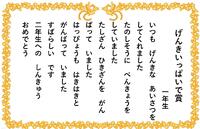 げんきいっぱいで賞
一年生
いつも げんきな あいさつを
してくれました
たのしそうに べんきょうを
していました
たしざん ひきざんを がん
ばって いました
はっぴょうも はきはきと
がんばって いました
すばらしい です
二年生への しんきゅう
おめでとう